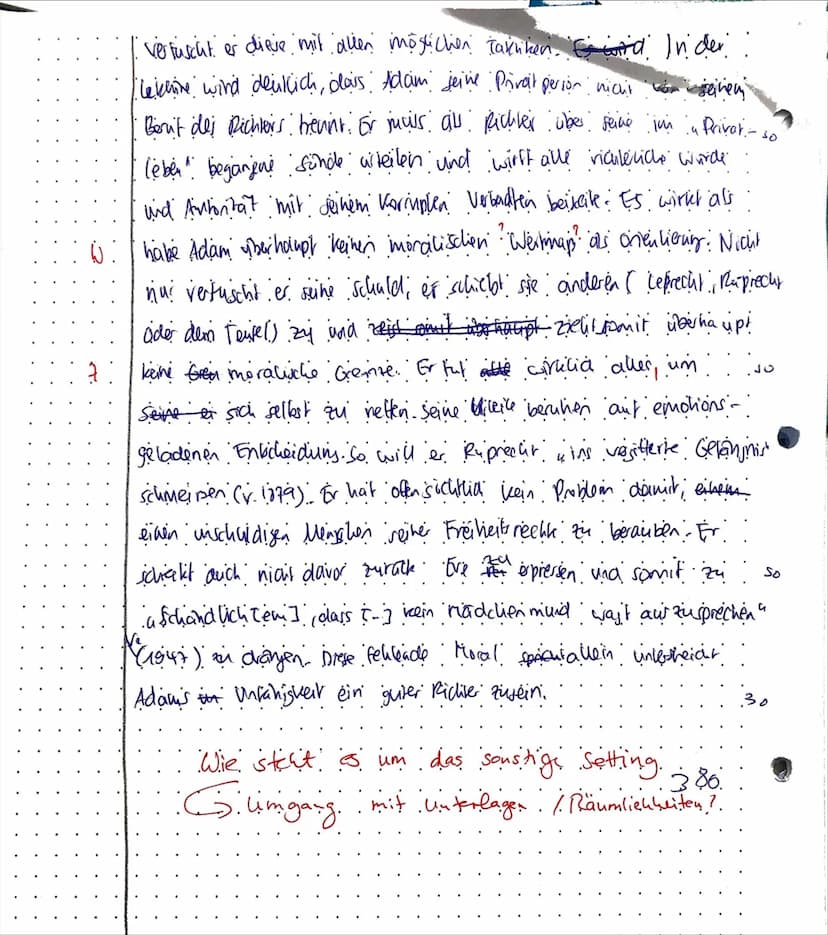 vertuscht er diese mit allen möglichen Taktiken. Es wird In der
Lektüre wird deutlich, dass Adam seine Privatperson nicht von seinem
Beruf des Richters trennt. Er muss als Richter über seine im „Privat-
50
leben" begangene Sünde urteilen und wirft alle richterliche Würde
und Autorität mit seinem korrupten Verhalten beiseite. Es wirkt als
W habe Adam überhaupt keinen moralischen ?Wertmap? als Orientierung. Nicht
nur vertuscht er seine Schuld, er schiebt sie anderen (Leprecht, Ruprecht
oder dem Teufel) zu und zeigt somit überhaupt zieht somit überhaupt
7 keine moralische Grenze. Er tut alle wirklich alles, um 50
Seine er sich selbst zu retten. Seine Urteile beruhen auf emotions-
geladenen Entscheidung. So will er Ruprecht „ins vergitterte Gefängnis
schmeißen (V. 1879). Er hat offensichtlich kein Problem damit, einem
einen unschuldigen Menschen seiner Freiheitsrechte zu berauben. Er
schrekt auch nicht davor zurück Eve zu erpressen und somit zu 50
„Schändlich[em], dass [-] kein Mädchenmund wagt auszusprechen"
V.
(1947) zu drängen. Diese fehlende Moral allein unterstreicht
Adams Unfähigkeit ein guter Richter zu sein.
30
Wie steht es um das sonstige Setting
380
Umgang mit Unterlagen / Räumlichkeiten?